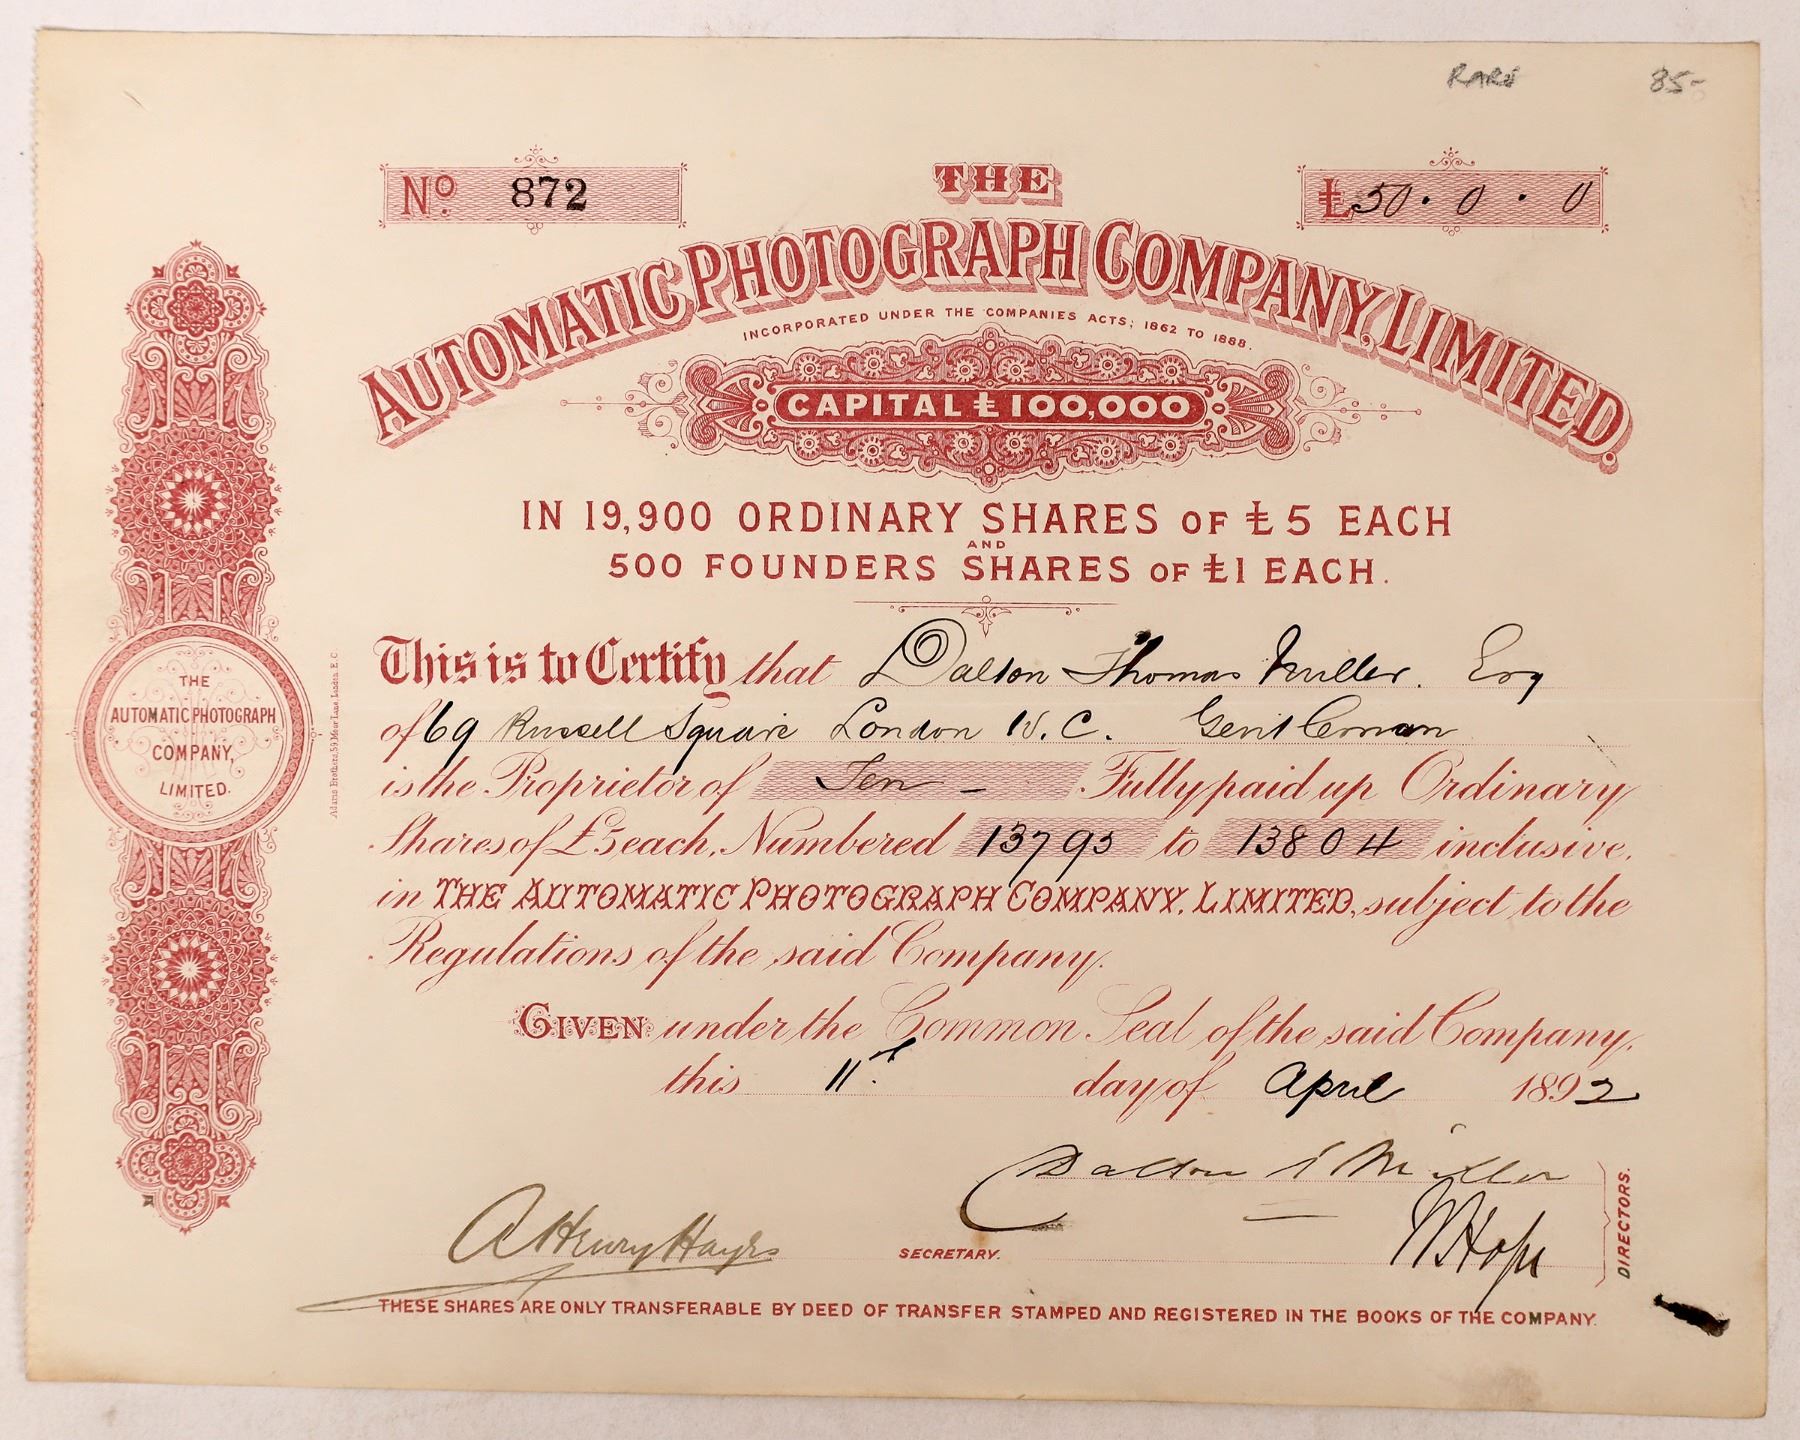 RARE 85-
No. 872
£50 . 0 . 0
THE
AUTOMATIC PHOTOGRAPH COMPANY, LIMITED.
INCORPORATED UNDER THE COMPANIES ACTS, 1862 TO 1888.
CAPITAL £100,000
IN 19,900 ORDINARY SHARES OF £5 EACH
AND
500 FOUNDERS SHARES OF £1 EACH.
This is to Certify that Dalton Thomas Miller. Esq
of 69 Russell Square London W.C. Gentleman
is the Proprietor of Ten - Fully paid up Ordinary
Shares of £5 each, Numbered 13795 to 13804 inclusive,
in THE AUTOMATIC PHOTOGRAPH COMPANY, LIMITED, subject to the
Regulations of the said Company.
GIVEN under the Common Seal of the said Company,
this 11th day of April 1892
Dalton T Miller
A Henry Hayes SECRETARY. W Hope
DIRECTORS.
THESE SHARES ARE ONLY TRANSFERABLE BY DEED OF TRANSFER STAMPED AND REGISTERED IN THE BOOKS OF THE COMPANY.
THE
AUTOMATIC PHOTOGRAPH
COMPANY,
LIMITED.
Adams Brothers, 59, Moor Lane, London, E.C.